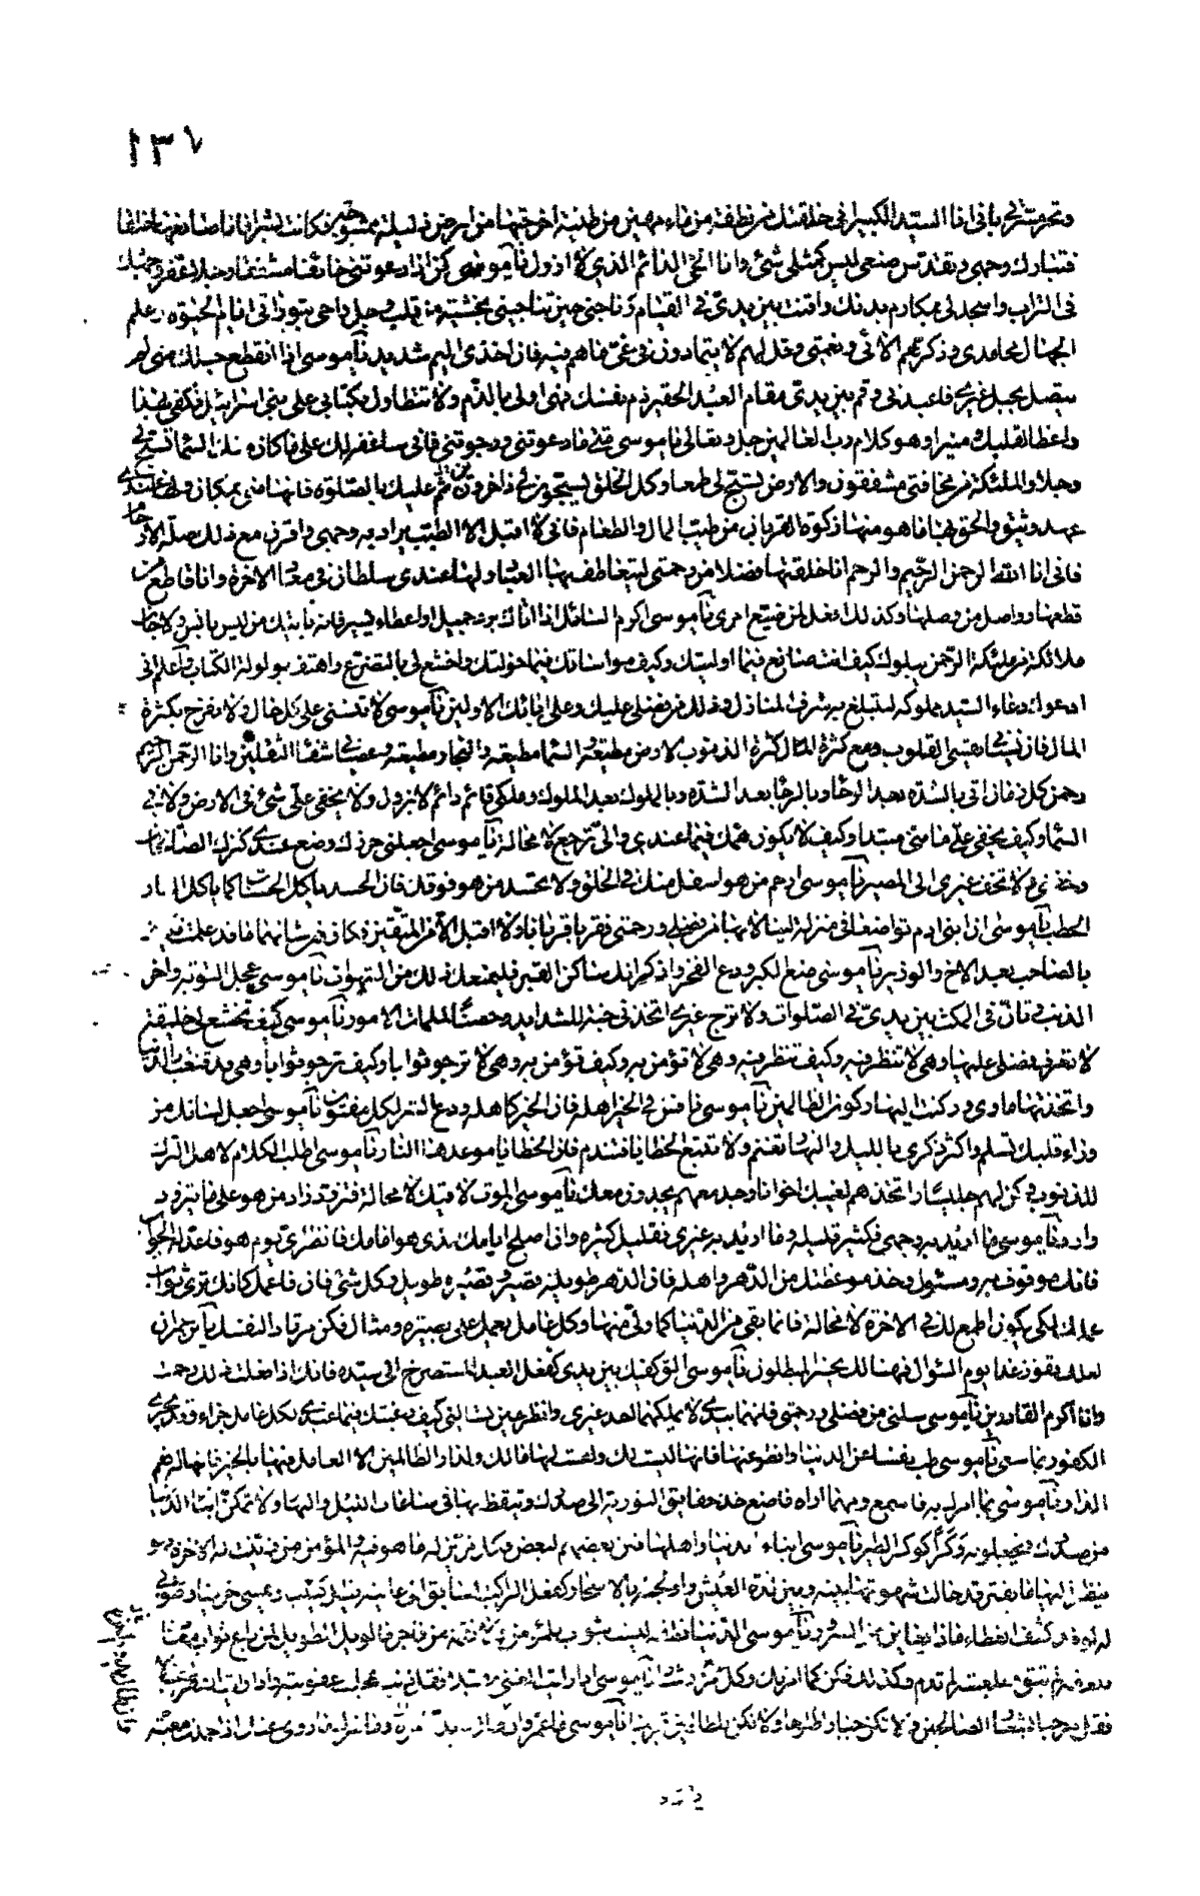 ١٣٧
وتحرمت بي فاني انا السيد الكبير اني خلقتك من نطفة من ماء مهين من طينة اخرجتها من ارض ذليلة ممشوجة فكانت بشرا فانا صانعها خلقا
فتبارك وجهي وتقدس صنعي ليس كمثلي شئ وانا الحي الدائم الذي لا ازول يا موسى كن اذا دعوتني خائفا مشفقا وجلا عفر وجهك
في التراب واسجد لي بمكارم بدنك واقنت بين يدي في القيام وناجني حين تناجيني بخشية من قلب وجل واحي بتورتي ايام الحيوة وعلم
الجهال محامدي وذكرهم الائي ونعمتي وقل لهم لا يتمادون في غي ما هم فيه فان اخذي اليم شديد يا موسى اذا انقطع حبلك مني لم
يتصل بحبل غيري فاعبدني وقم بين يدي مقام العبد الحقير ذم نفسك فهي اولى بالذم ولا تتطاول بكتابي على بني اسرائيل فكفى بهذا
واعظا لقلبك منيرا وهو كلام رب العالمين جل وتعالى يا موسى متى ما دعوتني ورجوتني فاني ساغفر لك على ما كان منك السماء تسبح لي
وجلا والملئكة من مخافتي مشفقون والارض تسبح لي طمعا وكل الخلق يسبحون لي داخرون ثم عليك بالصلوة فانها مني بمكان ولها عندي
عهد وثيق والحق بها ما هو منها زكوة القربان من طيب المال والطعام فاني لا اقبل الا الطيب يراد به وجهي واقرن مع ذلك صلة الارحام
فاني انا الله الرحمن الرحيم والرحم انا خلقتها فضلا من رحمتي ليتعاطف بها العباد ولها عندي سلطان في معاد الاخرة وانا قاطع من
قطعها وواصل من وصلها وكذلك افعل بمن ضيع امري يا موسى اكرم السائل اذا اتاك برد جميل او اعطاء يسير فانه ياتيك من ليس بانس ولا جان
ملائكة الرحمن يبلونك كيف انت صانع فيما اوليتك وكيف مواساتك فيما خولتك واخشع لي بالتضرع واهتف بولولة الكتاب واعلم اني
ادعوك دعاء السيد مملوكه لتبلغ به شرف المنازل وذلك من فضلي عليك وعلى ابائك الاولين يا موسى لا تنسني على كل حال ولا تفرح بكثرة
المال فان نسياني يقسي القلوب ومع كثرة المال كثرة الذنوب الارض مطيعة والسماء مطيعة والبحار مطيعة وعصياني شقاء الثقلين وانا الرحمن الرحيم
رحمن كل زمان اتي بالشدة بعد الرخاء وبالرخاء بعد الشدة وبالملوك بعد الملوك وملكي قائم دائم لا يزول ولا يخفى علي شئ في الارض ولا في
السماء وكيف يخفى علي ما مني مبتداه وكيف لا يكون همك فيما عندي والي ترجع لا محالة يا موسى اجعلني حرزك وضع عندي كنزك من الصالحات
وخفني ولا تخف غيري الي المصير يا موسى ارحم من هو اسفل منك في الخلق ولا تحسد من هو فوقك فان الحسد ياكل الحسنات كما تاكل النار
الحطب يا موسى ان ابني ادم تواضعا في منزلة لينالا بها من فضلي ورحمتي فقربا قربانا ولا اقبل الا من المتقين فكان من شانهما ما قد علمت فكيف تثق
بالصاحب بعد الاخ والوزير يا موسى ضع الكبر ودع الفخر واذكر انك ساكن القبر فليمنعك ذلك من الشهوات يا موسى عجل التوبة واخر
الذنب وتان في المكث بين يدي في الصلوات ولا ترج غيري اتخذني جنة للشدايد وحصنا لملمات الامور يا موسى كيف تخشع لي خليقة
لا تعرف فضلي عليها وهي لا تنظر فيه وكيف تنظر فيه وهي لا تؤمن به وكيف تؤمن به وهي لا ترجو ثوابا وكيف ترجو ثوابا وهي قد قنعت بالدنيا
واتخذتها ماوى وركنت اليها ركون الظالمين يا موسى نافس في الخير اهله فان الخير كاسمه ودع الشر لكل مفتون يا موسى اجعل لسانك من
وراء قلبك تسلم واكثر ذكري بالليل والنهار تغنم ولا تتبع الخطايا فتندم فان الخطايا موعدها النار يا موسى اطب الكلام لاهل الترك
للذنوب وكن لهم جليسا واتخذهم لغيبك اخوانا وجد معهم يجدون معك يا موسى الموت لاقيك لا محالة فتزود زاد من هو على ما يتزود
وارد يا موسى ما اريد به وجهي فكثير قليله وما اريد به غيري فقليل كثيره وان اصلح ايامك الذي هو امامك فانظر اي يوم هو فاعد له الجواب
فانك موقوف به ومسئول وخذ موعظتك من الدهر واهله فان الدهر طويله قصير وقصيره طويل وكل شئ فان فاعمل كانك ترى ثواب
عملك لكي يكون اطمع لك في الاخرة لا محالة فانما بقي من الدنيا كما ولى منها وكل عامل يعمل على بصيرة ومثال فكن مرتادا لنفسك يا ابن عمران
لعلك تفوز غدا يوم السؤال فهنالك يخسر المبطلون يا موسى الق كفيك بين يدي كفعل العبد المستصرخ الى سيده فانك اذا فعلت ذلك رحمت
وانا اكرم القادرين يا موسى سلني من فضلي ورحمتي فانهما بيدي لا يملكهما احد غيري وانظر حين تسالني كيف رغبتك فيما عندي لكل عامل جزاء وقد يجزى
الكفور بما سعى يا موسى طب نفسا عن الدنيا وانطو عنها فانها ليست لك ولست لها مالك ولدار الظالمين الا العامل فيها بالخير فانها له نعم
الدار يا موسى ما امرك به فاسمع ومهما اراه فاصنع خذ حقايق التورية الى صدرك وتيقظ بها في ساعات الليل والنهار ولا تمكن ابناء الدنيا
من صدرك فيجعلونه وكرا كوكر الطير يا موسى ابناء الدنيا واهلها فتن بعضهم لبعض فكل مزين له ما هو فيه والمؤمن من زينت له الاخرة فهو
ينظر اليها ما يفتر قد حالت شهوتها بينه وبين لذة العيش فادلجته بالاسحار كفعل الراكب السابق الى غايته يظل كئيبا ويمسي حزينا فطوبى
له لو قد كشف الغطاء ماذا يعاين من السرور يا موسى الدنيا نطفة ليست بثواب للمؤمن ولا نقمة من فاجر فالويل الطويل لمن باع ثواب معاده
بلعقة لم تبق وبلعسة لم تدم وكذلك فكن كما امرتك وكل امري رشاد يا موسى اذا رايت الغنى مقبلا فقل ذنب عجلت عقوبته واذا رايت الفقر مقبلا
فقل مرحبا بشعار الصالحين ولا تكن جبارا ظلوما ولا تكن للظالمين قرينا يا موسى ما عمر وان طال